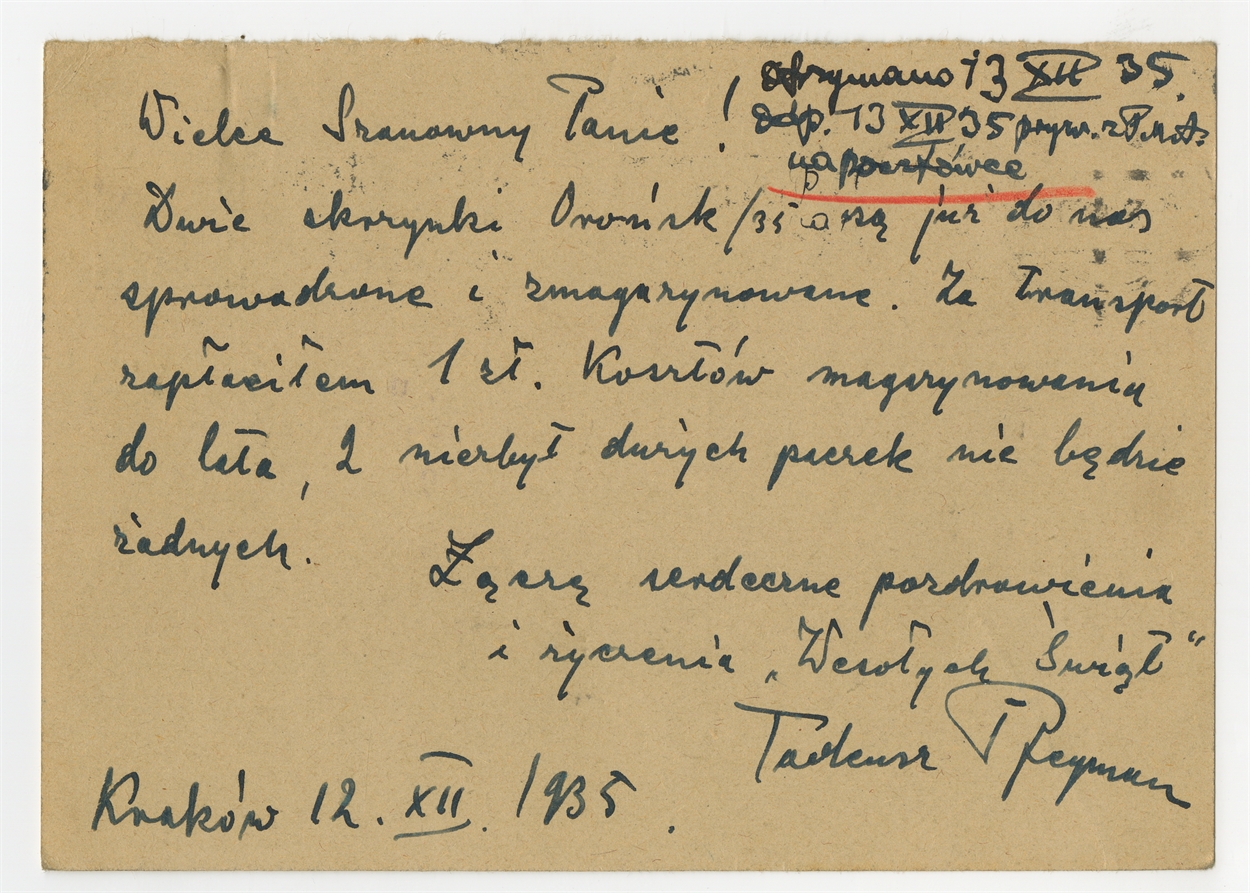 otrzymano 13 XII 35.
odp. 13 XII 35 pryw.
na pocztówce
Wielce Szanowny Panie!
Dwie skrzynki Orońsk/35 a są już do nas
sprowadzone i zmagazynowane. Za transport
zapłaciłem 1 zł. Kosztów magazynowania
do lata, 2 niezbyt dużych paczek nie będzie
żadnych.
Łączą serdeczne pozdrowienia
i życzenia „Wesołych Świąt“
Tadeusz Pfeyman
Kraków 12. XII. 1935.